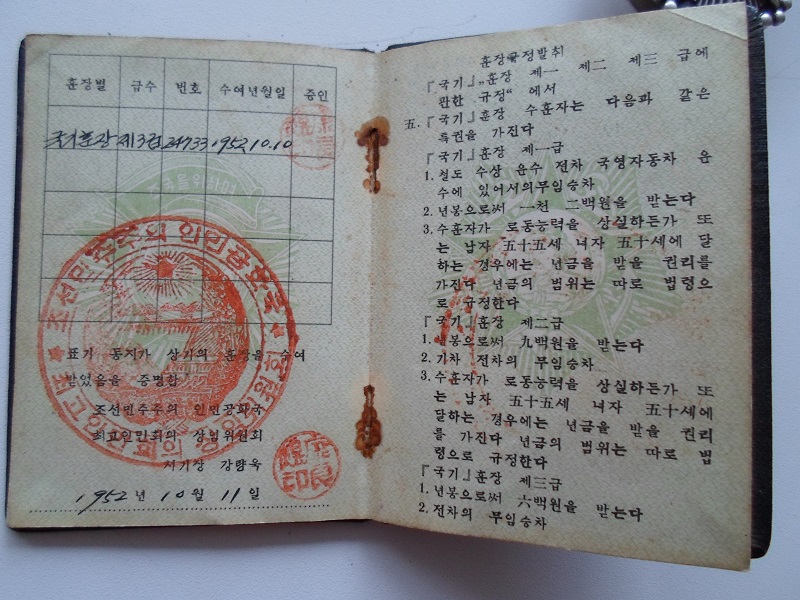 훈장별 급수 번호 수여년월일 증인
국기훈장 제3급 24733 1952.10.10
표기 동지가 상기의 훈장을 수여
받었음을 증명함
조선민주주의 인민공화국
최고인민회의 상임위원회
서기장 강량욱
1952년 10월 11일
훈장규정발취
『국기』„훈장 제一 제二 제三 급에
관한 규정“ 에서
五.『국기』훈장 수훈자는 다음과 같은
특권을 가진다
『국기』훈장 제一급
1. 철도 수상 운수 전차 국영자동차 운
수에 있어서의무임승차
2. 년봉으로써 一천 二백원을 받는다
3. 수훈자가 로동능력을 상실하든가 또
는 남자 五十五세 녀자 五十세에 달
하는 경우에는 년금을 받을 권리를
가진다 년금의 범위는 따로 법령으
로 규정한다
『국기』훈장 제二급
1. 년봉으로써 九백원을 받는다
2. 기차 전차의 무임승차
3. 수훈자가 로동능력을 상실하든가 또
는 남자 五十五세 녀자 五十세에
달하는 경우에는 년금을 받을 권리
를 가진다 년금의 범위는 따로 법
령으로 규정한다
『국기』훈장 제三급
1. 년봉으로써 六백원을 받는다
2. 전차의 무임승차